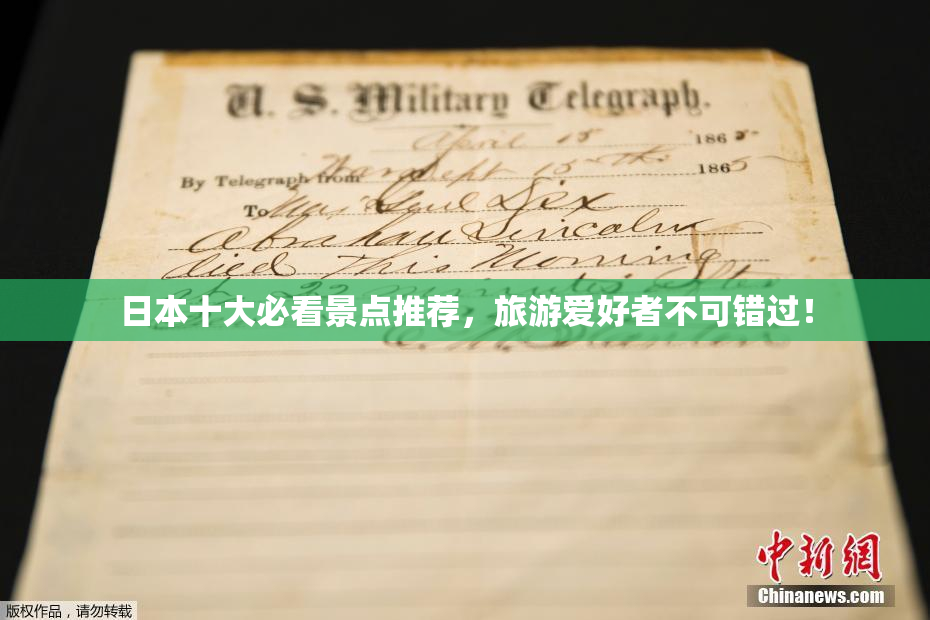 U. S. Military Telegraph.
April 15 1865
By Telegraph from War Dept 15th 1865
To Maj Genl Dix
Abraham Lincoln
died This Morning
at 22 minutes after
日本十大必看景点推荐，旅游爱好者不可错过！
中新网
Chinanews.com
版权作品，请勿转载